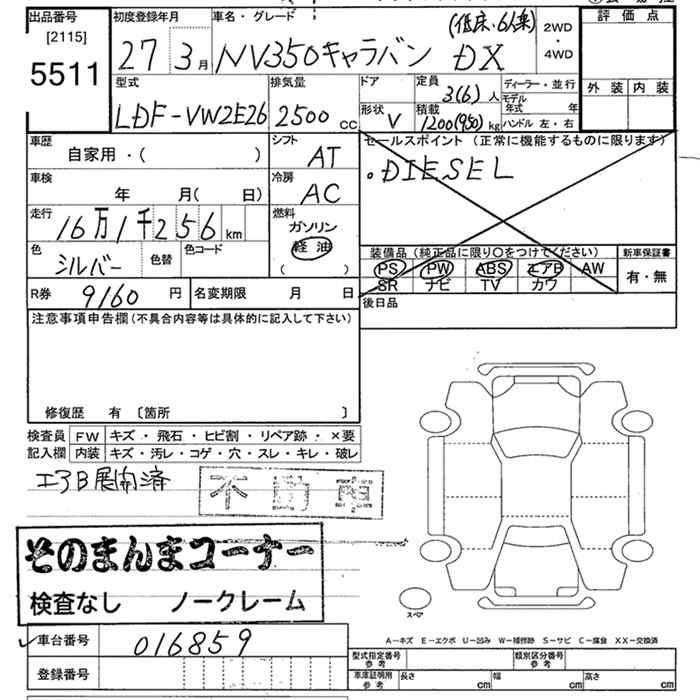 出品番号 初度登録年月 車名・グレード (低床・6人乗) 2WD 評価点
[2115] 27 3月 NV350キャラバン DX ・
5511 4WD
型式 排気量 ドア 定員 ディーラー・並行 外装 内装
LDF-VW2E26 2500 CC 3(6)人 モデル年式 年
形状 V 積載 1200(950)kg ハンドル 左・右
車歴 シフト セールスポイント (正常に機能するものに限ります)
自家用・( ) AT .DIESEL
車検 冷房
年 月(日) AC
走行 燃料
16万1千256km ガソリン
色 色替 色コード 軽油 装備品(純正品に限り○をつけてください) 新車保証書
シルバー ( ) PS PW ABS エアB AW 有・無
SR ナビ TV カワ
R券 9160円 名変期限 月 日 後日品
注意事項申告欄(不具合内容等は具体的に記入して下さい)
修復歴 有〔箇所 〕
検査員 FW キズ・飛石・ヒビ割・リペア跡・×要
記入欄 内装 キズ・汚レ・コゲ・穴・スレ・キレ・破レ
エアB展開済 不動車
そのまんまコーナー
検査なし ノークレーム
スペア
車台番号 016859 A−キズ E−エクボ U−凹み W−補修跡 S−サビ C−腐食 XX−交換済
型式指定番号 参考 類別区分番号 参考
登録番号 車庫証明用 参考 長さ cm 幅 cm 高さ cm